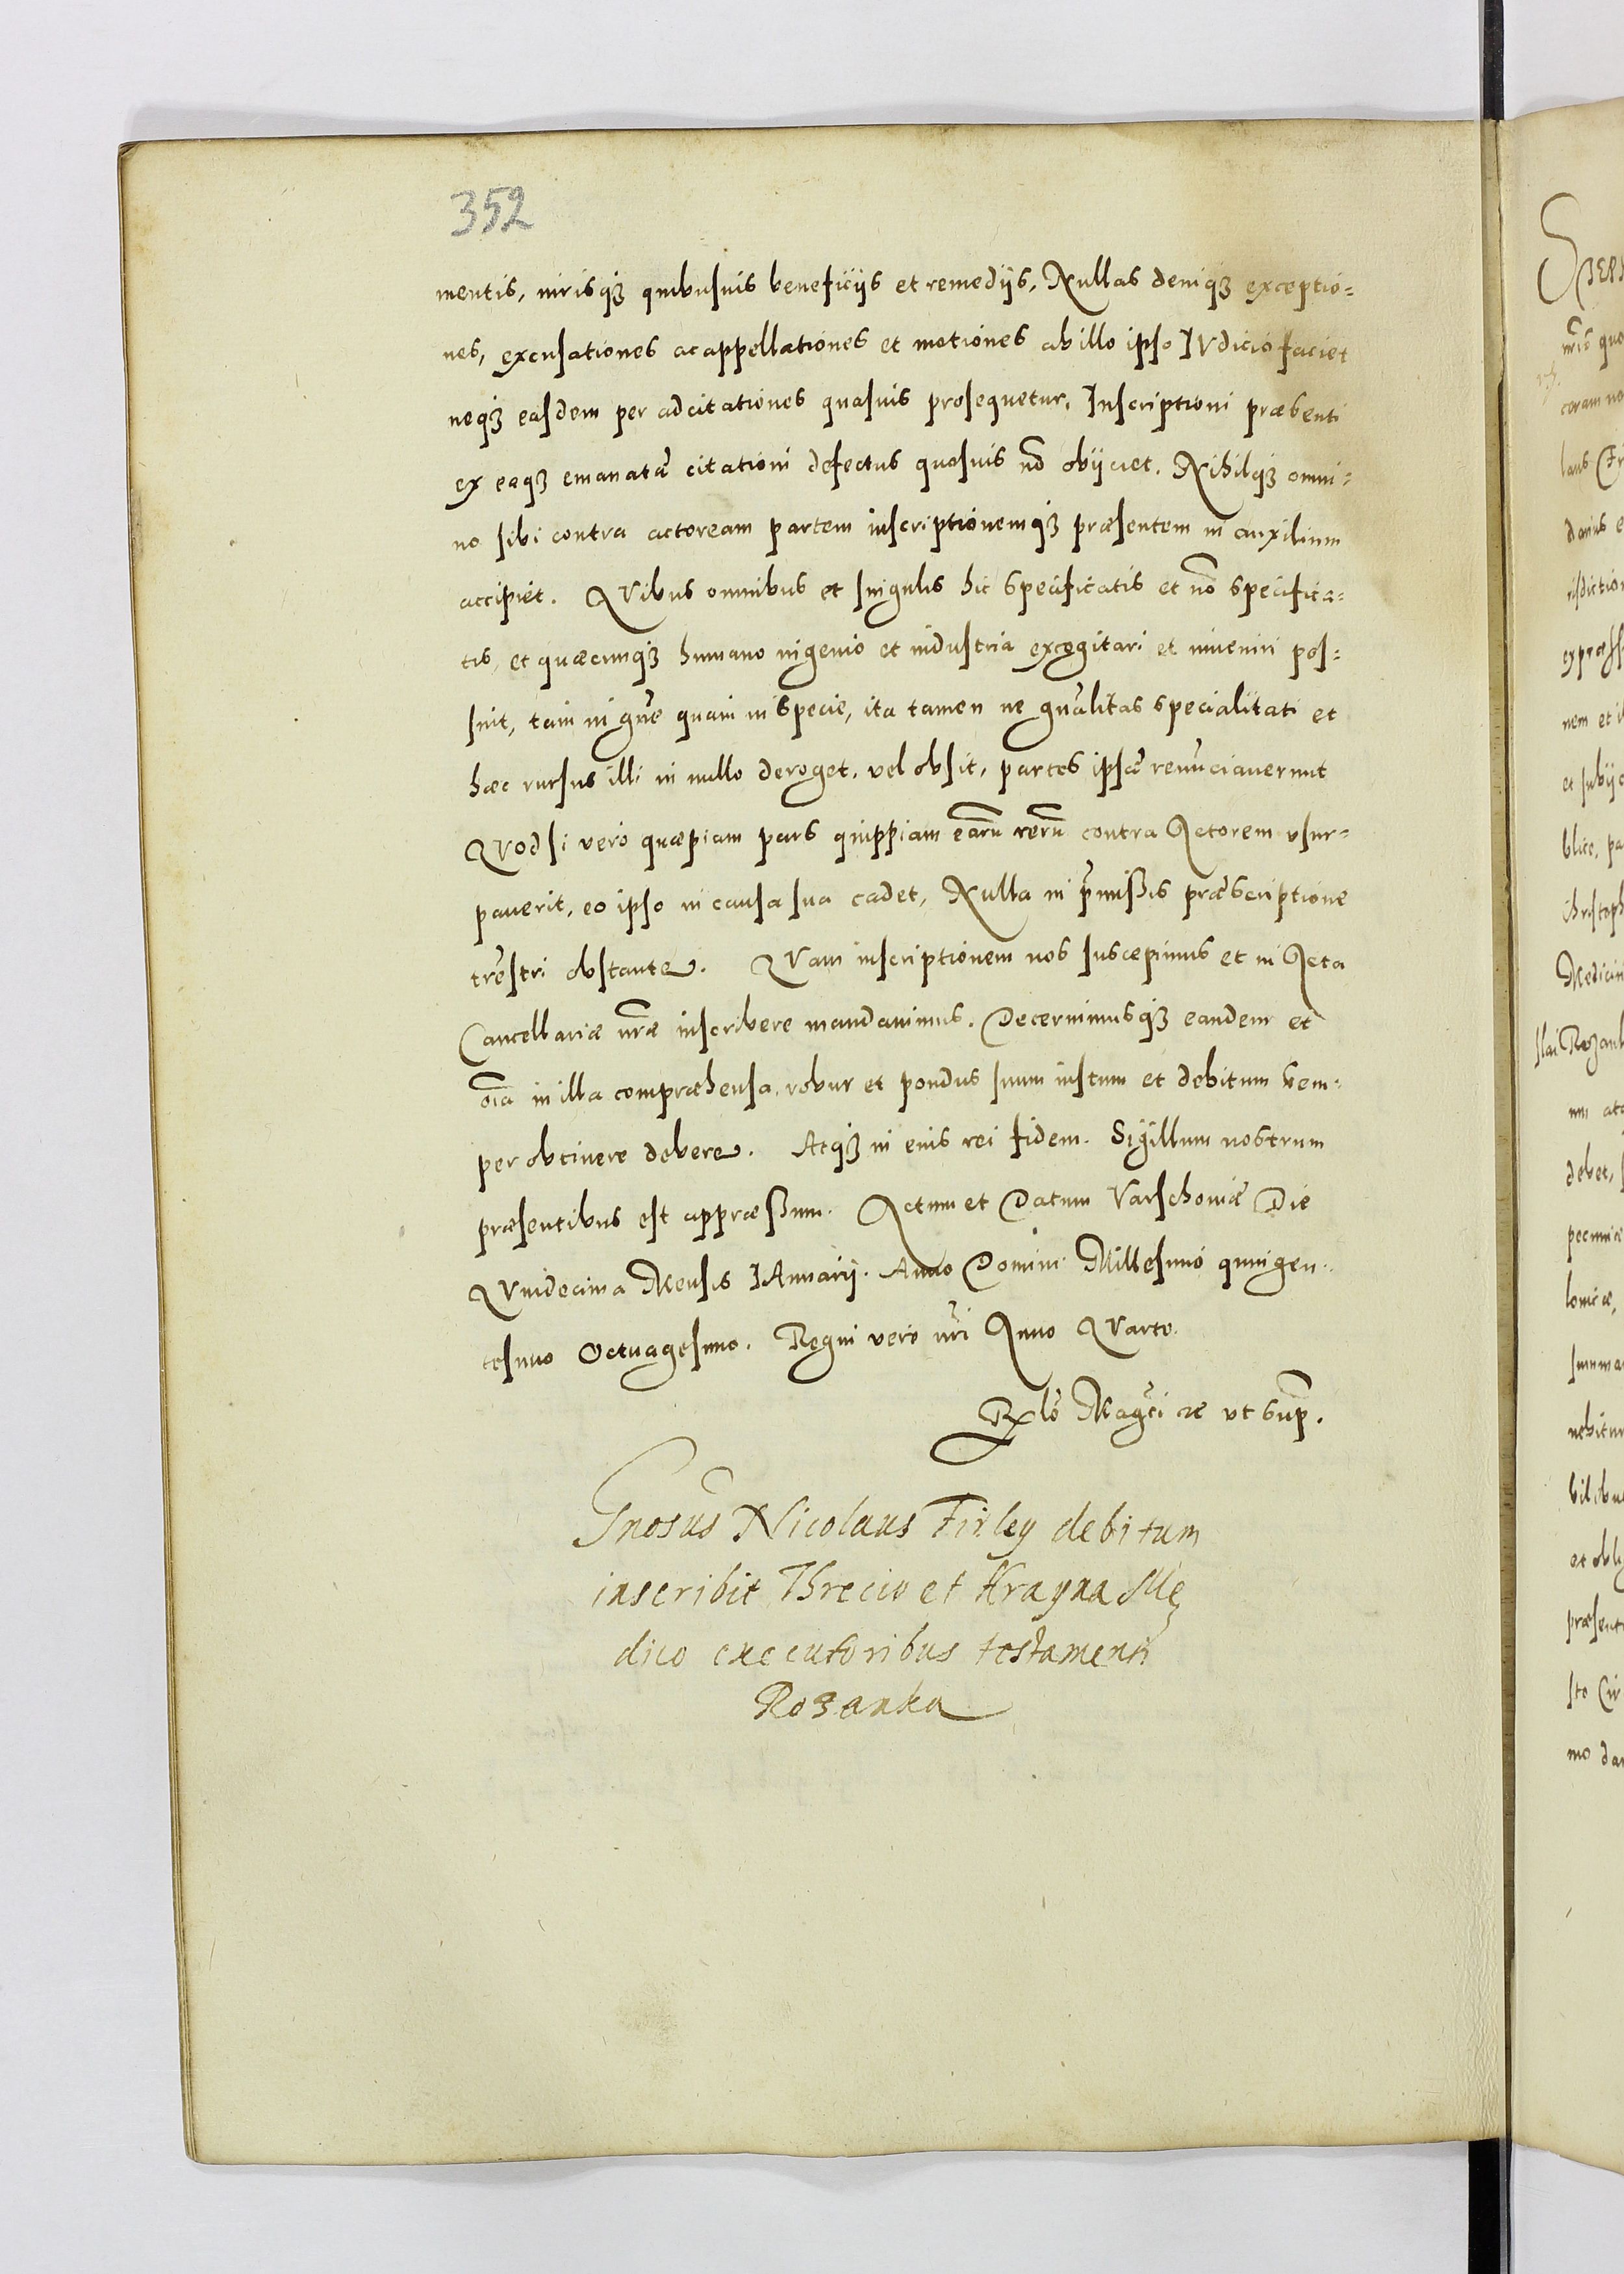 352
mentis, iurisq3 quibusuis beneficijs et remedijs, Nullas deniq3 exceptio=
nes, excusationes ac appellationes et motiones ab illo ipso IVdicio faciet
neq3 easdem per adcitationes quasuis prosequetur, Inscriptioni præsenti
ex eaq3 emanatæ citationi defectus quosuis nō obijciet. Nihilq3 omni=
no sibi contra actoream partem inscriptionemq3 præsentem in auxilium
accipiet. QVibus omnibus et singulis hic specificatis et nō specifica=
tis, et quæcunq3 humano ingenio et industria excogitari et inueniri pos=
sint, tam in gn̄e quam in specie, ita tamen ne gnālitas specialitati et
hæc rursus illi in nullo deroget, vel obsit, partes ipsæ renūciauerunt
QVod si vero quæpiam pars quippiam earū rerū contra Actorem vsur=
pauerit, eo ipso in causa sua cadet, Nulla in p̄missis præscriptione
trēstri obstante. QVam inscriptionem nos suscepimus et in Acta
Cancellariæ nr̄æ inscribere mandauimus. Decernimusq3 eandem et
oīa in illa compræhensa, robur et pondus suum iustum et debitum sem=
per obtinere debere. Atq3 in eius rei fidem. Sigillum nostrum
præsentibus est appræssum. Actum et Datum Varschouiæ Die
QVindecima Mensis IAnuarij. Anno Domini Millesimo quingen=
tesimo Octuagesimo. Regni vero nr̄i Anno QVarto.
Rlō Magci æ vt sup.
Gnosus Nicolaus Firley debitum
inscribit Threcio et Krayna Me
dico executoribus testamenti
Rozanka